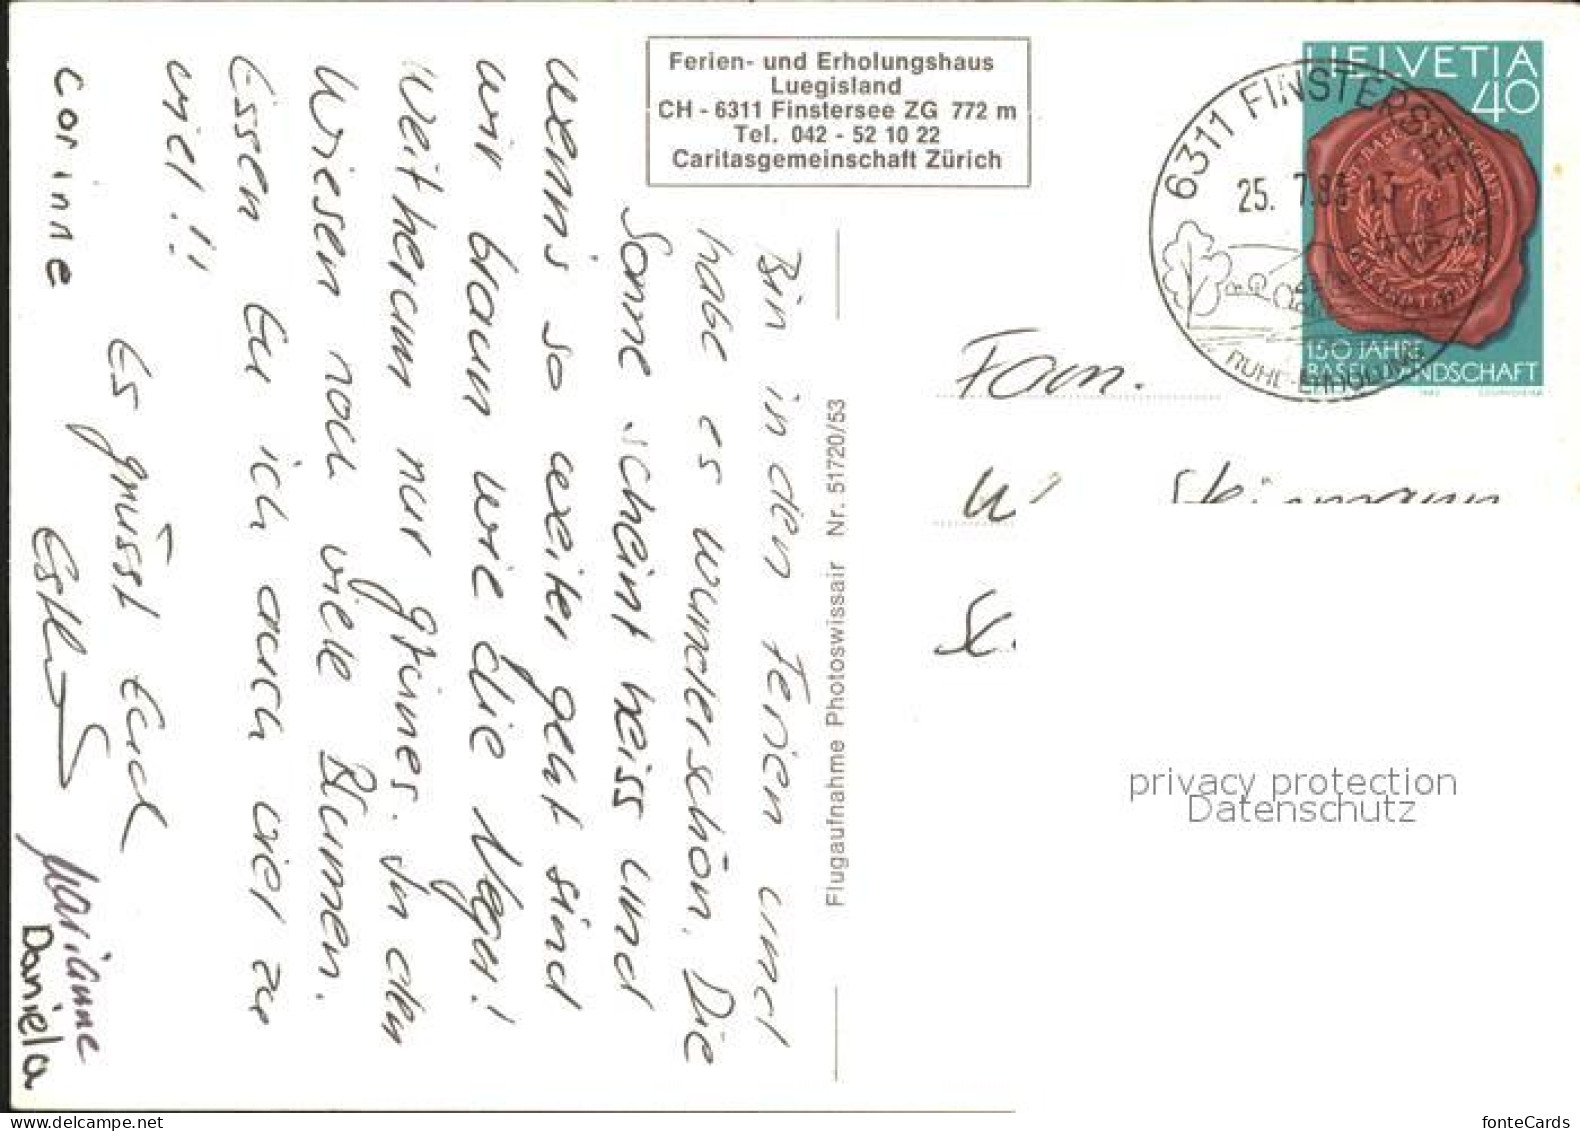 Ferien- und Erholungshaus
Luegisland
CH - 6311 Finstersee ZG 772 m
Tel. 042 - 52 10 22
Caritasgemeinschaft Zürich
HELVETIA
40
150 JAHRE
BASEL-LANDSCHAFT
6311 FINSTERSEE
25. 7.85 - 13
Bin in den Ferien und
habe es wunderschön. Die
Sonne scheint heiss und
wenns so weiter geht sind
wir braun wie die Neger!
Weit herum nur grünes. In den
Wiesen noch viele Blumen.
Essen tu ich auch viel zu
viel!!
Es grüsst Euch
Corinne
Esther
Marianne
Daniela
Flugaufnahme Photoswissair Nr. 51720/53
Fam.
W. Steinmann
privacy protection
Datenschutz
fonteCards